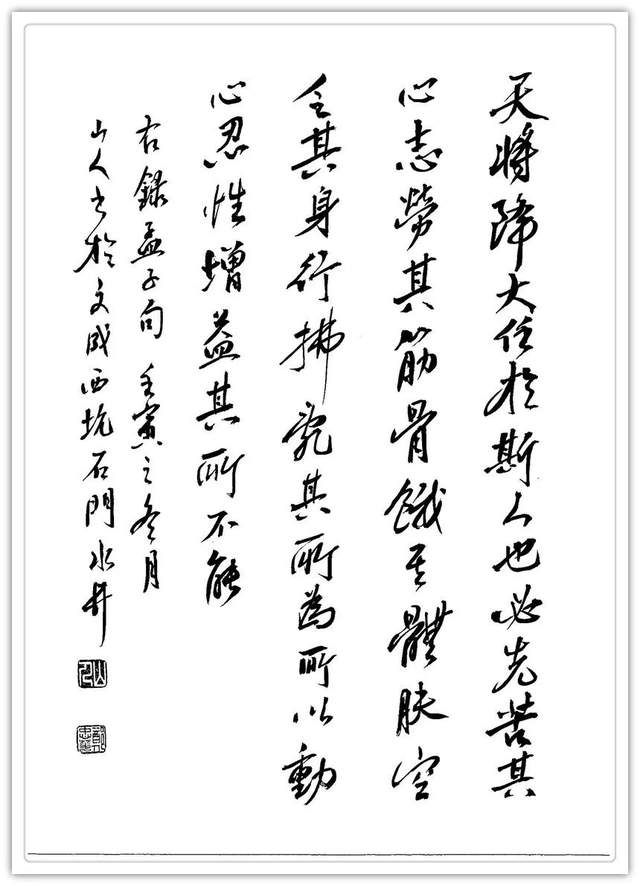 天將降大任於斯人也必先苦其
心志勞其筋骨餓其體肤空
乏其身行拂亂其所為所以動
心忍性增益其所不能
右錄孟子句 壬寅之冬月
山人书於文成西坑石門水井
山人